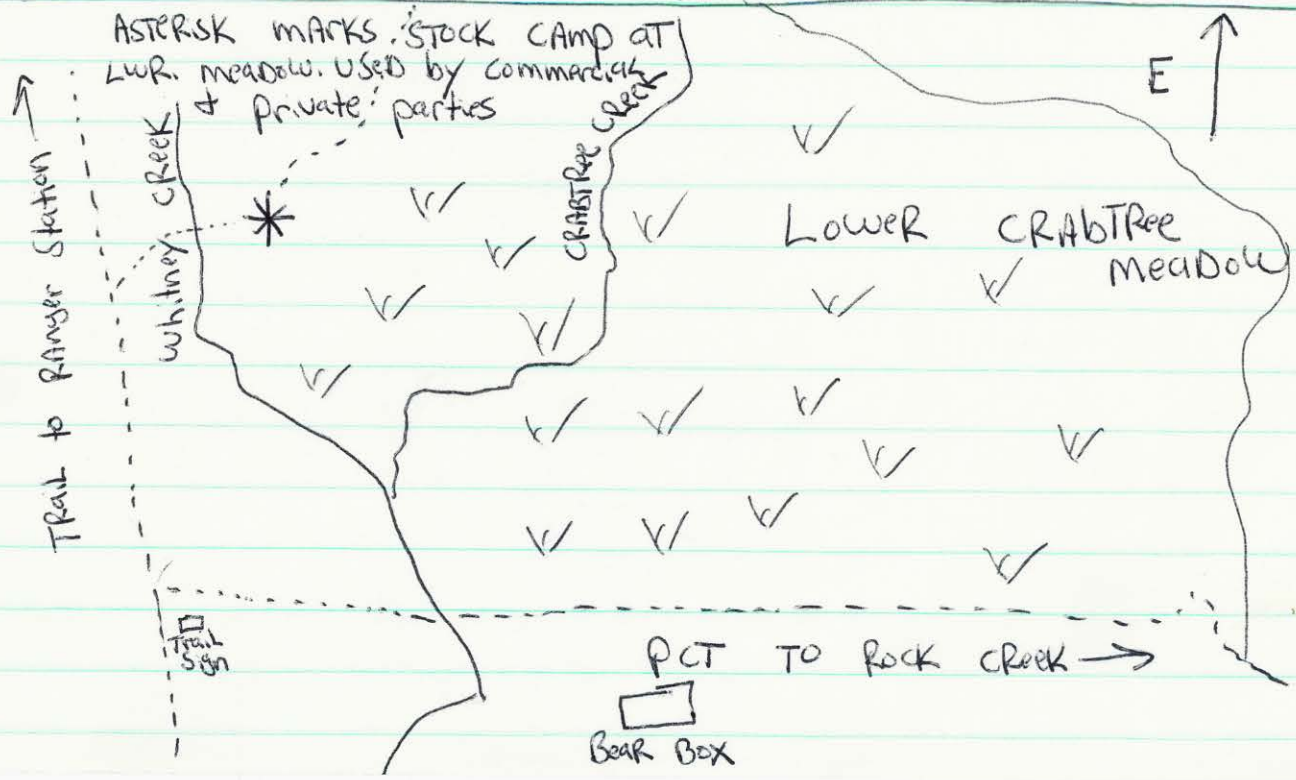 ASTERISK MARKS STOCK CAMP AT
LWR. MEADOW. USED by COMMERCIAL
+ Private parties
E
TRAIL to RANGER Station
Whitney CREEK
CRABTREE CREEK
LOWER CRABTREE
MEADOW
Trail
Sign
PCT TO ROCK CREEK
BEAR BOX